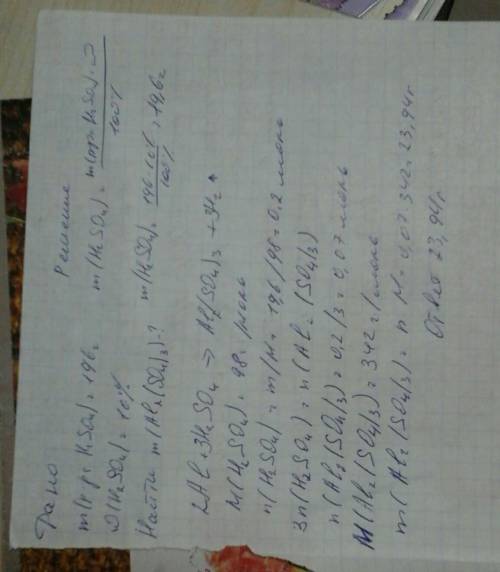 Дано
Решение
m(р-р. H₂SO₄) = 196г
m(H₂SO₄) = m(р-р. H₂SO₄)·ω / 100%
ω(H₂SO₄) = 10%
Найти m(Al₂(SO₄)₃)-?
m(H₂SO₄) = 196·10% / 100% = 19,6г
2Al+3H₂SO₄ → Al₂(SO₄)₃ + 3H₂↑
M(H₂SO₄) = 98г/моль
n(H₂SO₄) = m/M = 19,6/98 = 0,2 моль
3n(H₂SO₄) = n(Al₂(SO₄)₃)
n(Al₂(SO₄)₃) = 0,2/3 = 0,07 моль
M(Al₂(SO₄)₃) = 342г/моль
m(Al₂(SO₄)₃) = n·M = 0,07·342 = 23,94г
Ответ 23,94г